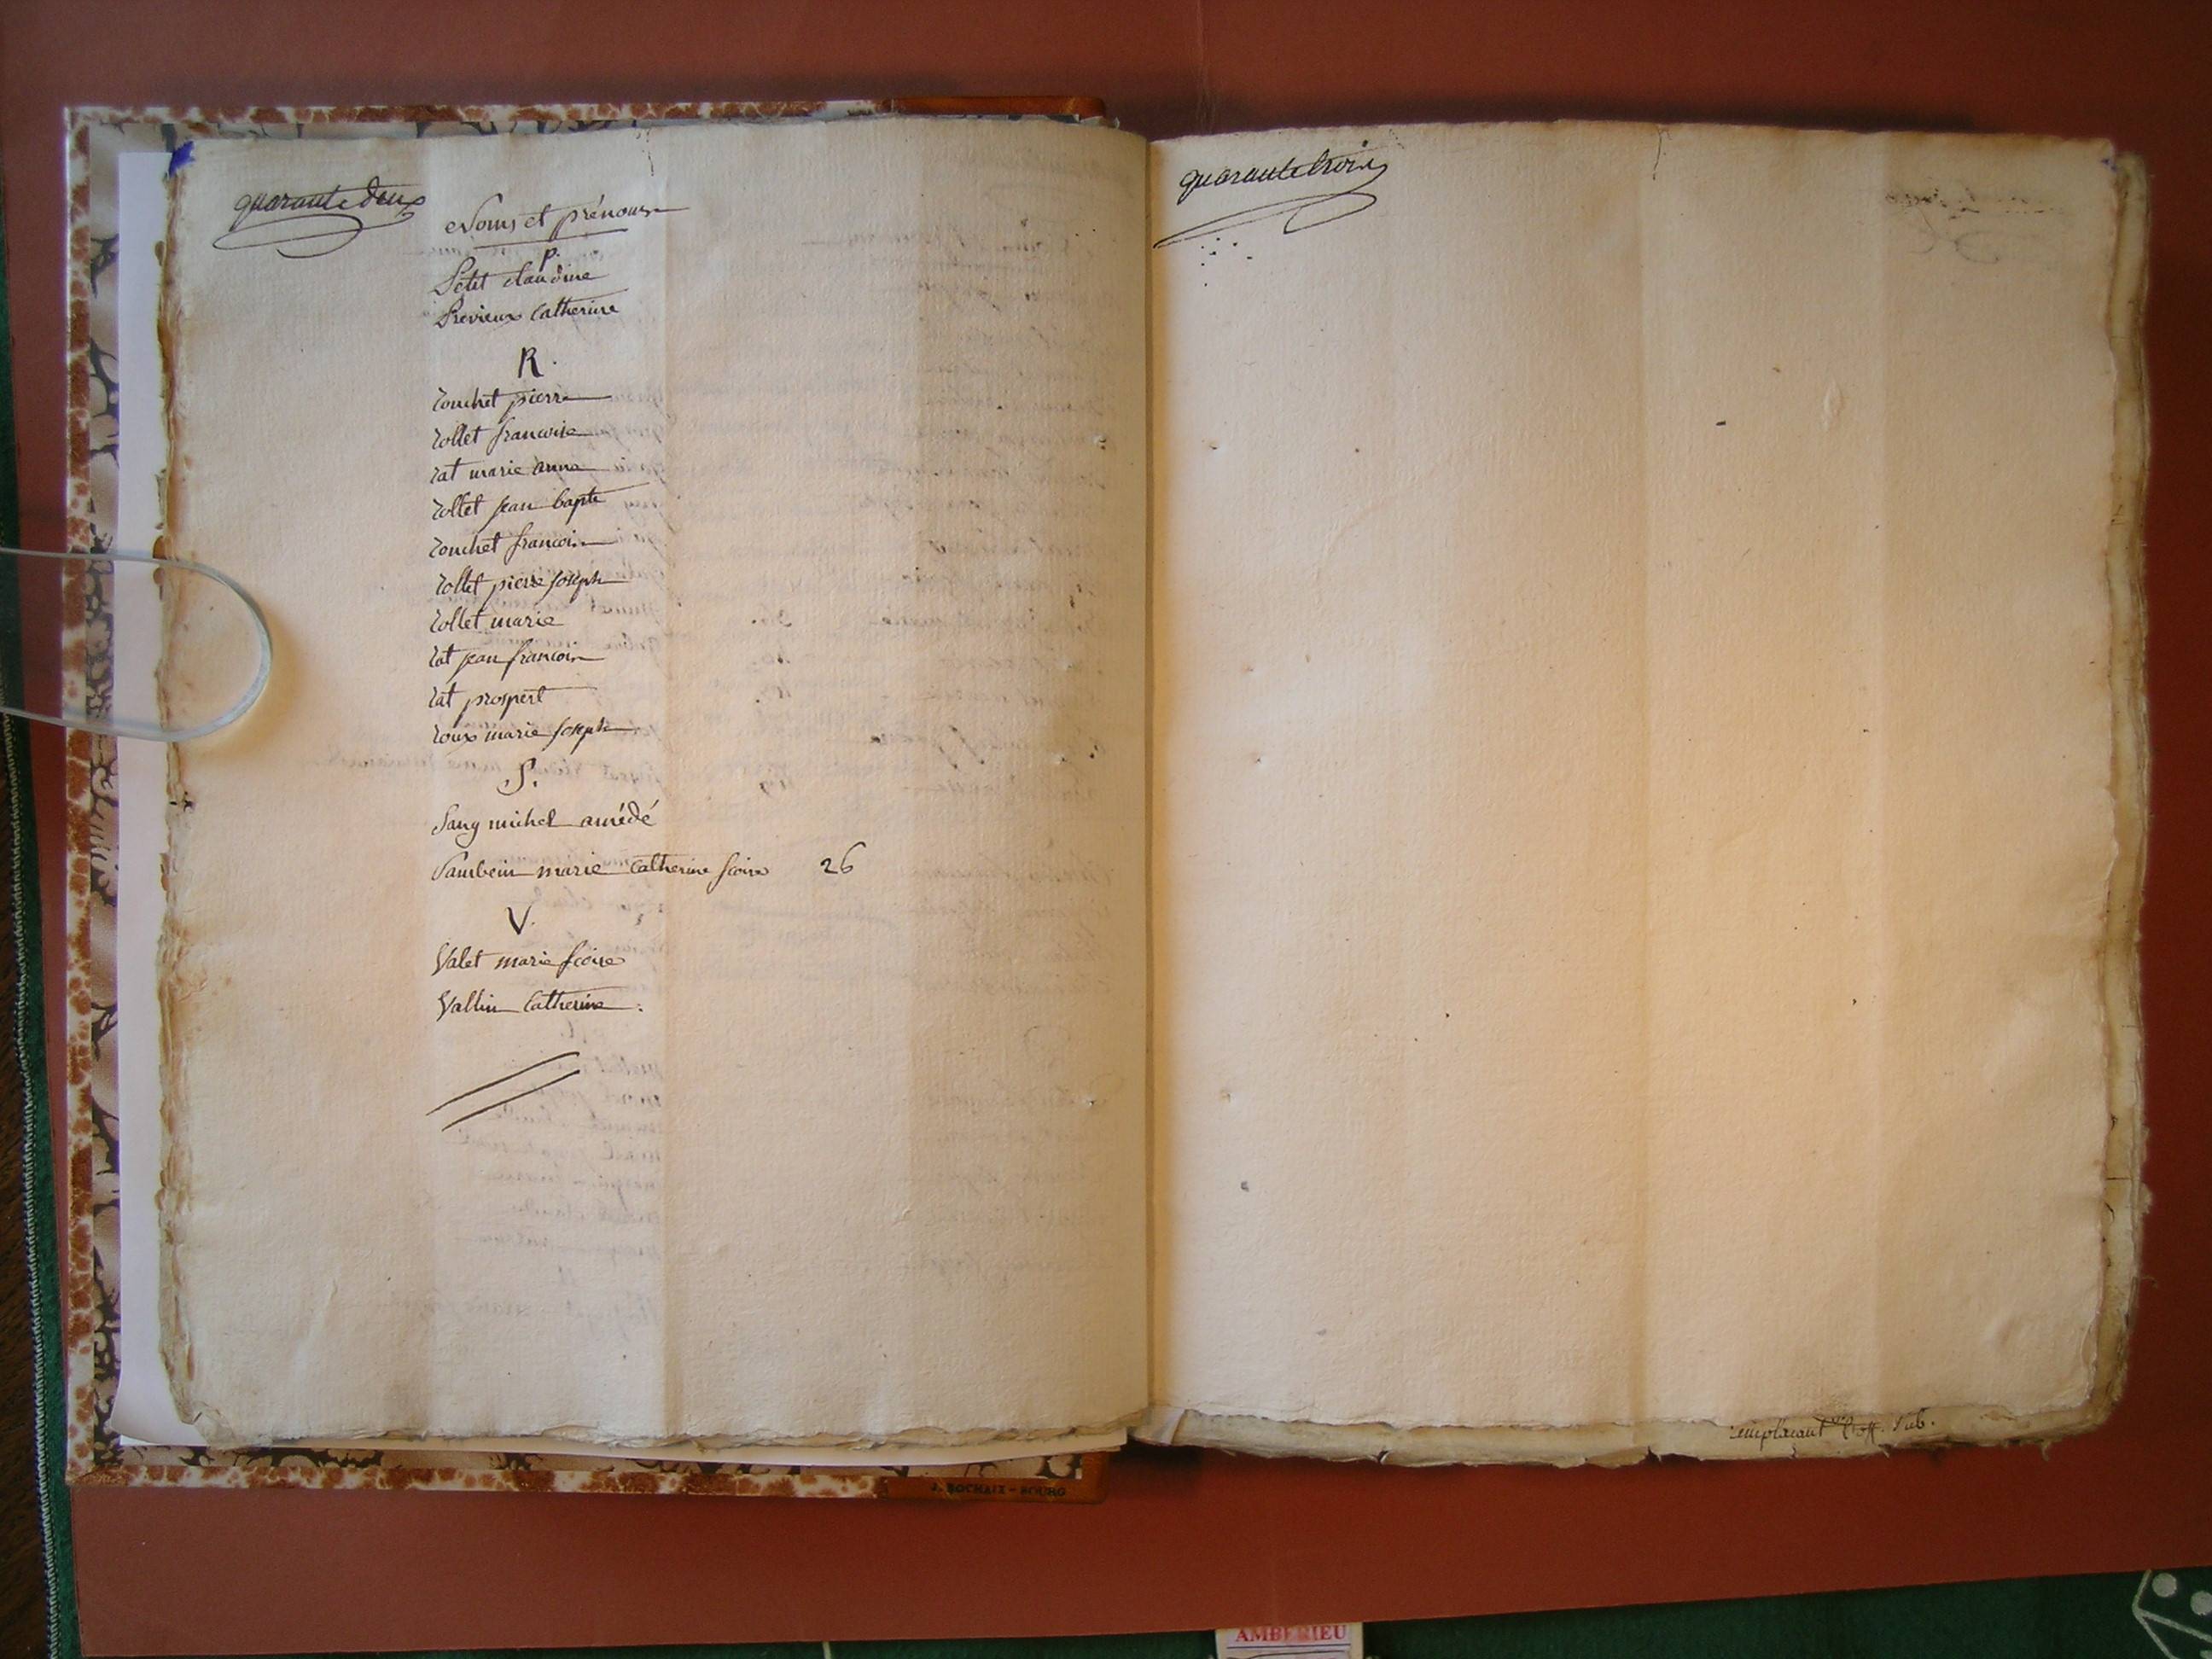 quarante deux
Noms et prénoms
P.
Petit claudine
Previeux Catherine
R.
rouchet pierre
rollet francoise
rat marie anne
rollet jean bapte
rouchet francois
rollet pierre joseph
rollet marie
rat jean francois
rat prospert
roux marie joseph
S.
Sang michel amédé
Sambein marie Catherine 26
V.
Valet marie
Vallin Catherine
quarante trois
remplacant l'off. Pub.
J. ROCHAIX - BOURG
AMBERIEU